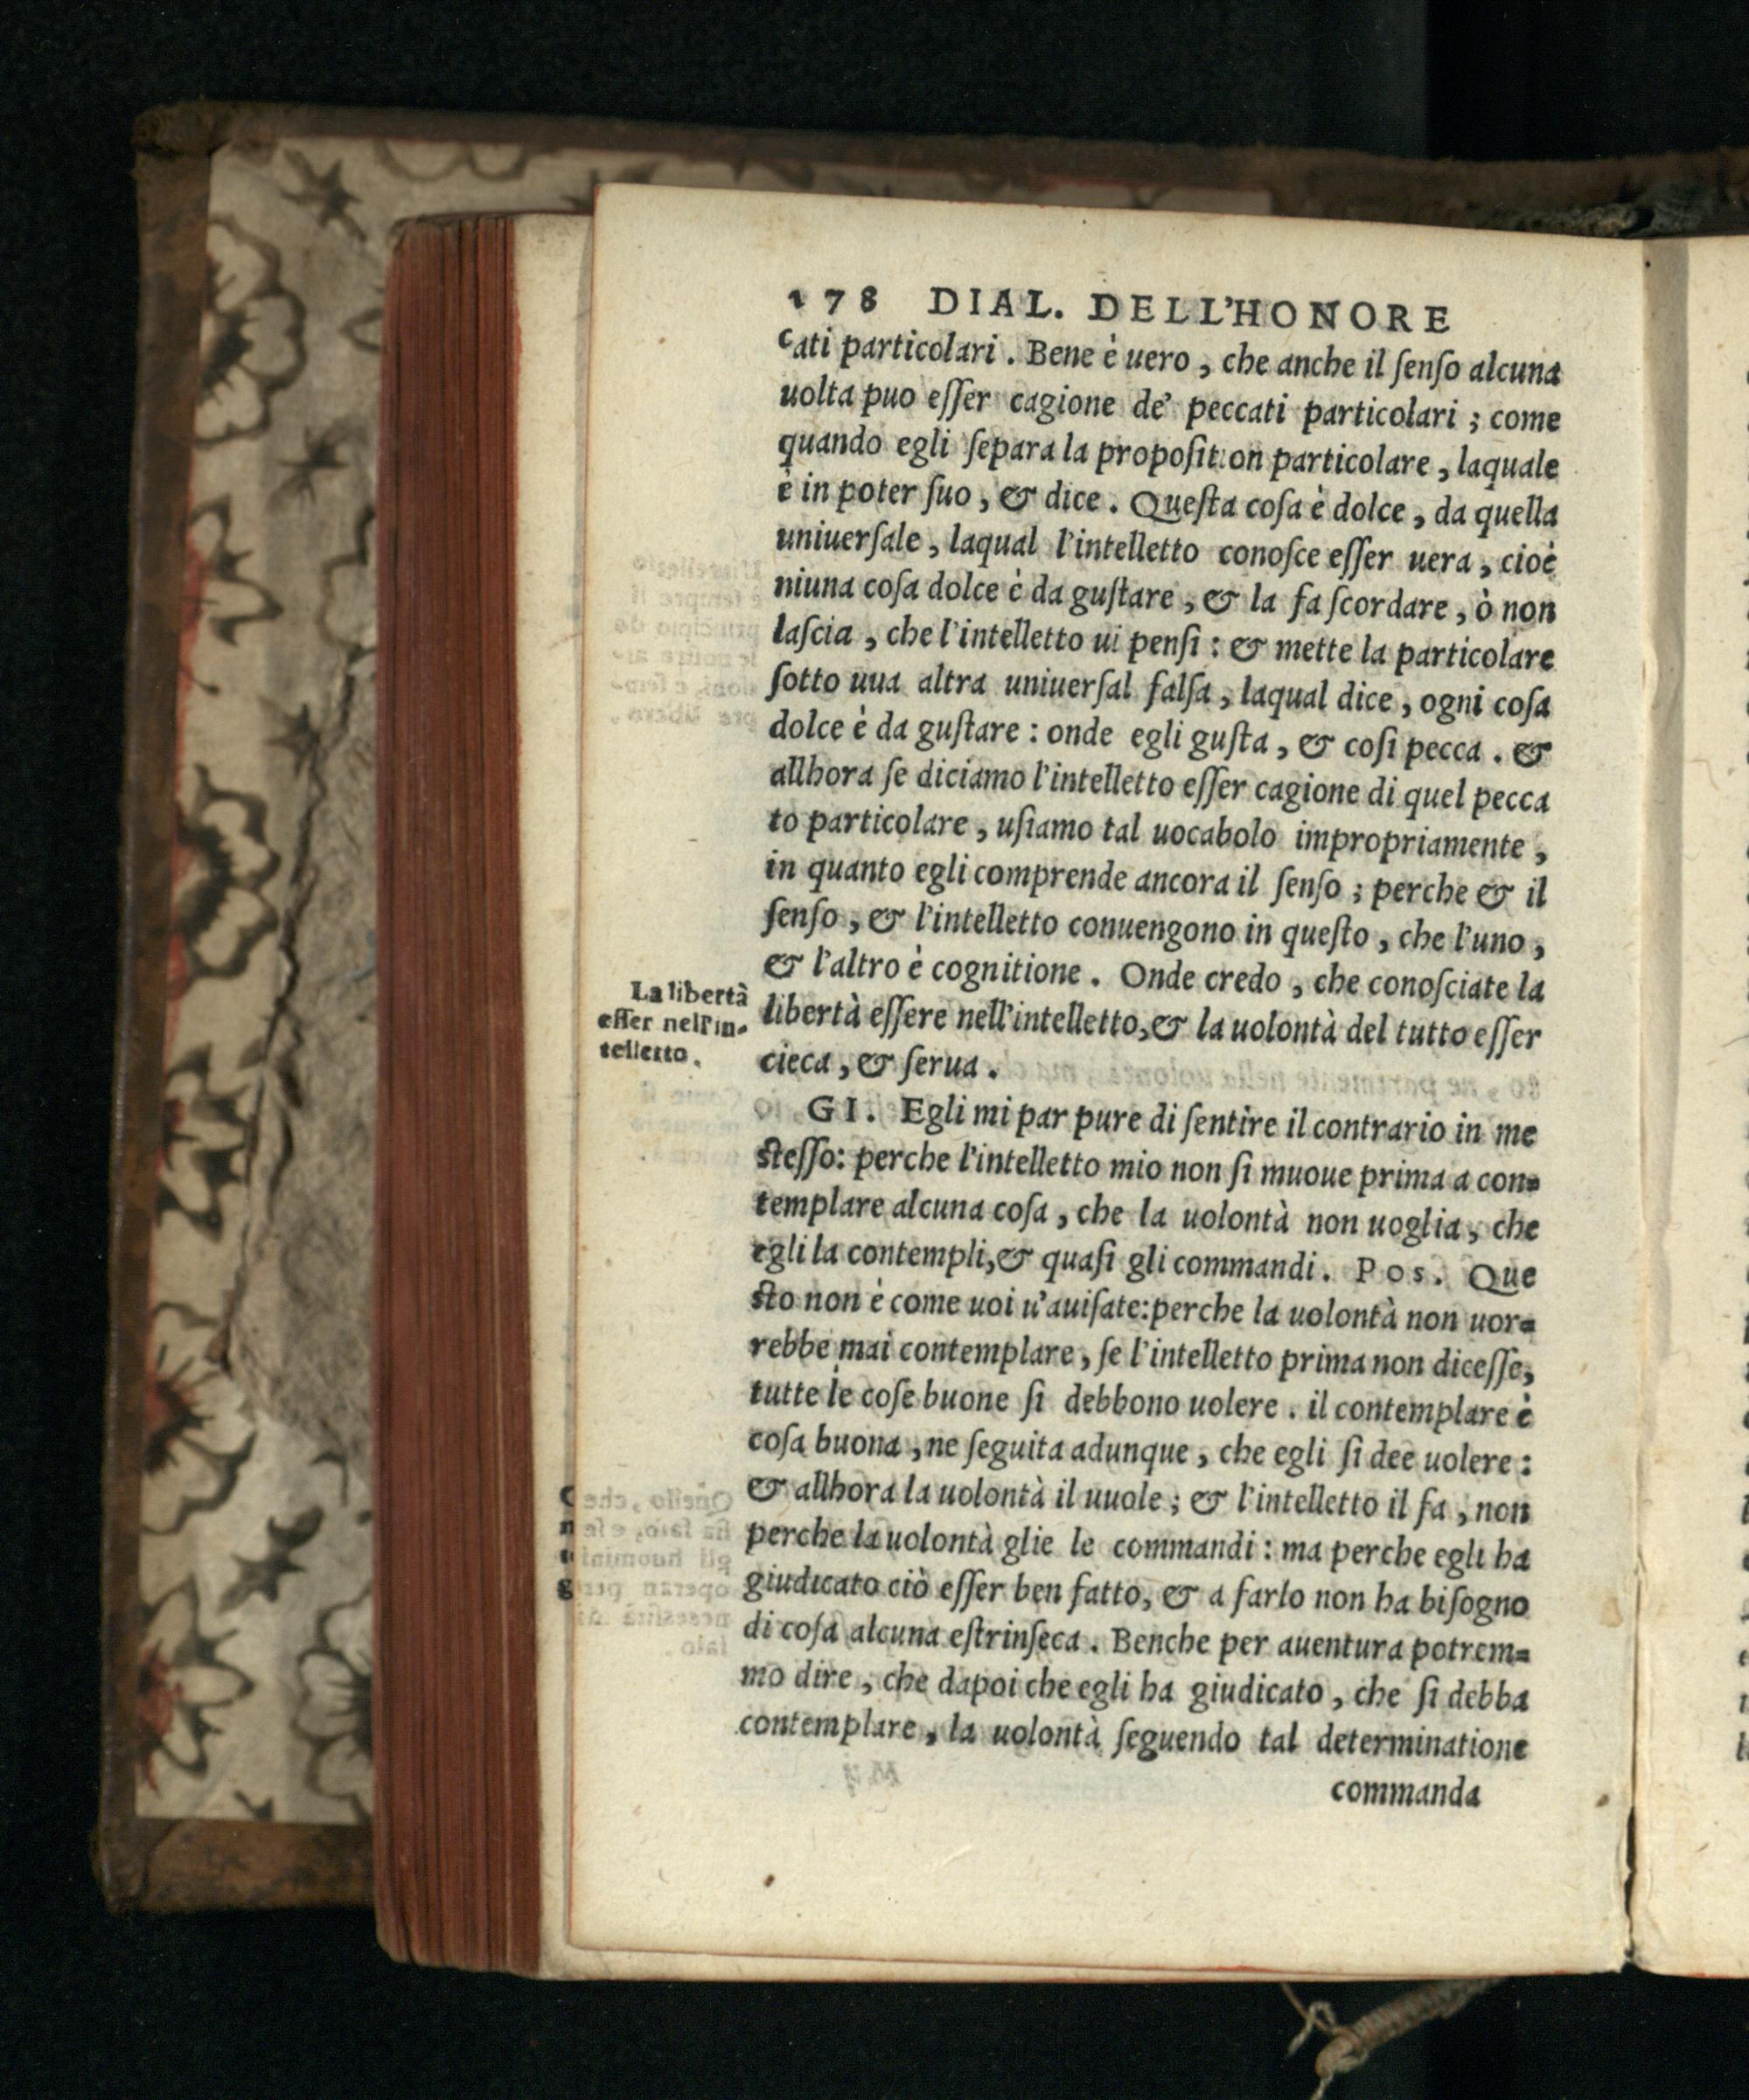 178 DIAL. DELL'HONORE
cati particolari. Bene è uero, che anche il ſenſo alcuna
uolta puo eſſer cagione de' peccati particolari; come
quando egli ſepara la propoſition particolare, laquale
è in poter ſuo, & dice. Queſta coſa è dolce, da quella
uniuerſale, laqual l'intelletto conoſce eſſer uera, cioè
niuna coſa dolce è da guſtare, & la fa ſcordare, ò non
laſcia, che l'intelletto ui penſi: & mette la particolare
ſotto una altra uniuerſal falſa, laqual dice, ogni coſa
dolce è da guſtare: onde egli guſta, & coſi pecca. &
allhora ſe diciamo l'intelletto eſſer cagione di quel pecca
to particolare, uſiamo tal uocabolo impropriamente,
in quanto egli comprende ancora il ſenſo; perche & il
ſenſo, & l'intelletto conuengono in queſto, che l'uno,
& l'altro è cognitione. Onde credo, che conoſciate la
libertà eſſere nell'intelletto, & la uolontà del tutto eſſer
cieca, & ſerua.
La libertà
eſſer nell'in-
telletto.
GI. Egli mi par pure di ſentire il contrario in me
ſteſſo: perche l'intelletto mio non ſi muoue prima a con-
templare alcuna coſa, che la uolontà non uoglia, che
egli la contempli, & quaſi gli commandi. POS. Que
ſto non è come uoi u'auiſate: perche la uolontà non uor-
rebbe mai contemplare, ſe l'intelletto prima non diceſſe,
tutte le coſe buone ſi debbono uolere. il contemplare è
coſa buona, ne ſeguita adunque, che egli ſi dee uolere:
& allhora la uolontà il uuole; & l'intelletto il fa, non
perche la uolontà glie le commandi: ma perche egli ha
giudicato ciò eſſer ben fatto, & a farlo non ha biſogno
di coſa alcuna eſtrinſeca. Benche per auentura potrem-
mo dire, che dapoi che egli ha giudicato, che ſi debba
contemplare, la uolontà ſeguendo tal determinatione
commanda